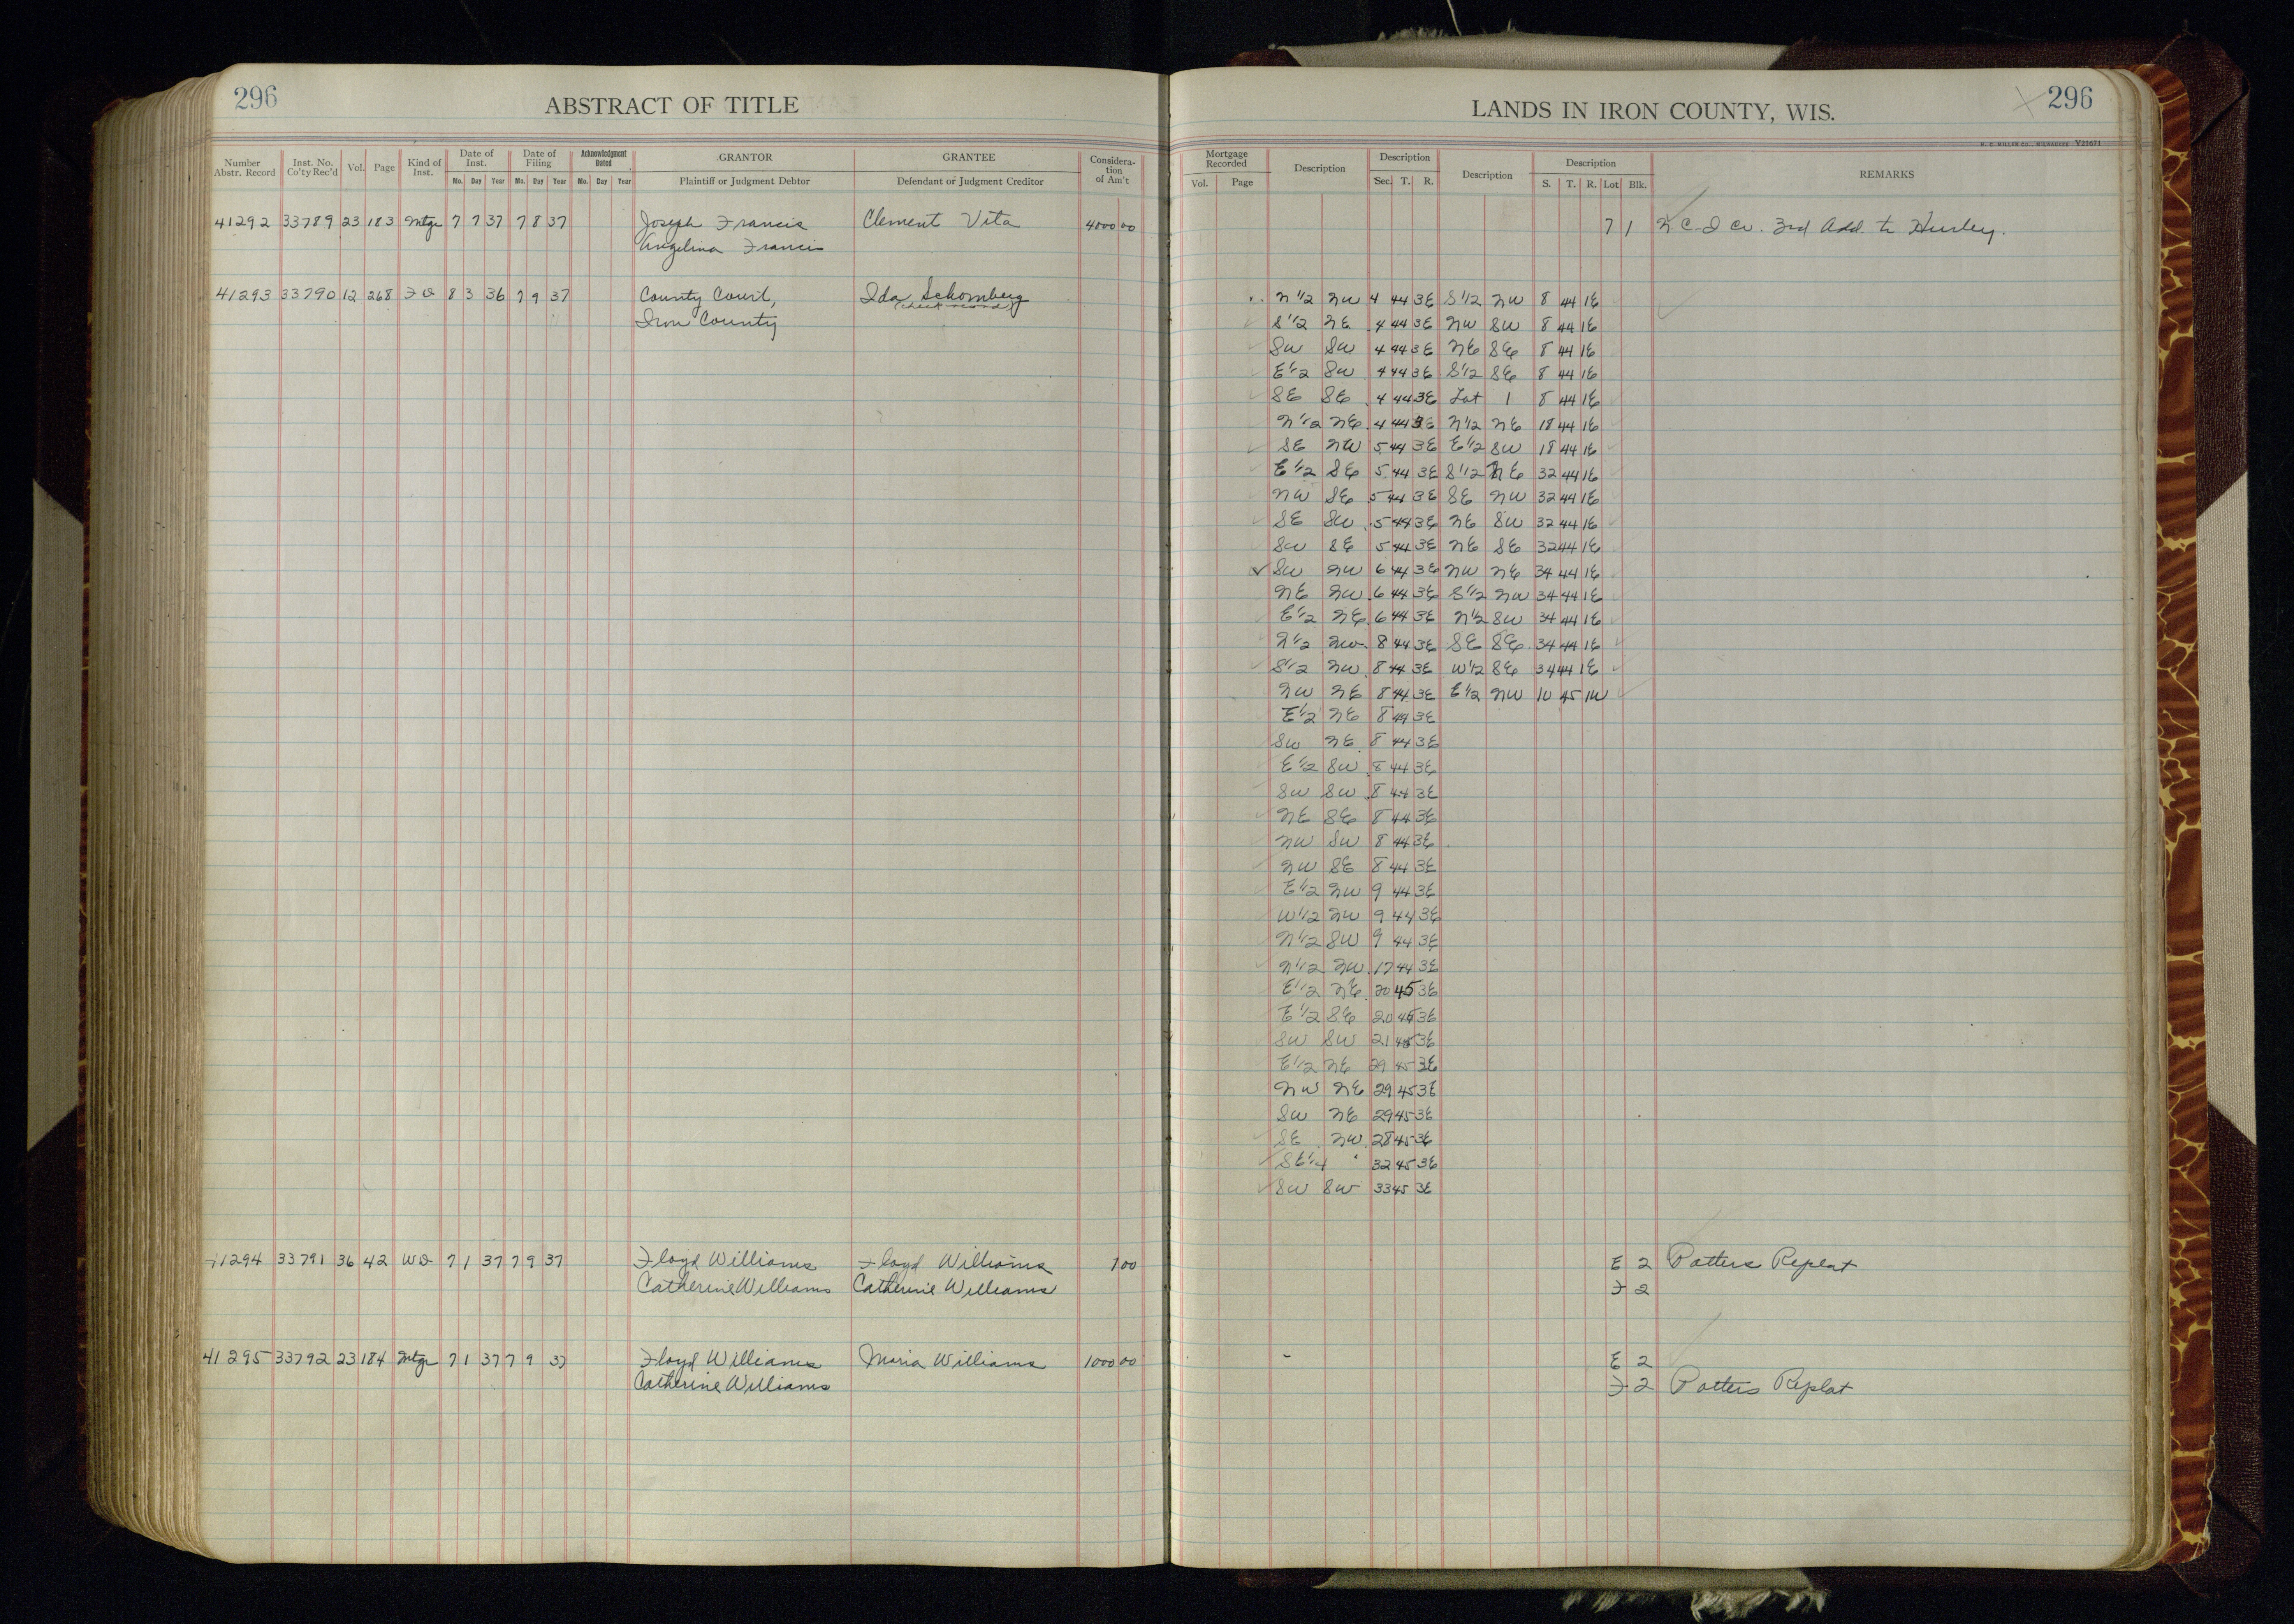 296
ABSTRACT OF TITLE
Number Abstr. Record
Inst. No. Co'ty Rec'd
Vol.
Page
Kind of Inst.
Date of Inst.
Mo. Day Year
Date of Filing
Mo. Day Year
Acknowledgment Dated
Mo. Day Year
GRANTOR
Plaintiff or Judgment Debtor
GRANTEE
Defendant or Judgment Creditor
Considera-tion of Am't
41292 33789 23 183 Mtge 7 7 37 7 8 37 Joseph Francis Clement Vita 4000 00
Angelina Francis
41293 33790 12 268 F D 8 3 36 7 9 37 County Court, Ida Schomberg
Iron County (check record)
41294 33791 36 42 WD 7 1 37 7 9 37 Floyd Williams Floyd Williams 1 00
Catherine Williams Catherine Williams
41295 33792 23 184 Mtge 7 1 37 7 9 37 Floyd Williams Maria Williams 1000 00
Catherine Williams
LANDS IN IRON COUNTY, WIS.
296
H. C. MILLER CO., MILWAUKEE Y21671
Mortgage Recorded
Vol. Page
Description
Description
Sec. T. R.
Description
Description
S. T. R. Lot Blk.
REMARKS
7 1 N C I Co. 3rd Add. to Hurley.
N 1/2 NW 4 44 3E S 1/2 NW 8 44 1E
S 1/2 NE 4 44 3E NW SW 8 44 1E
SW SW 4 44 3E NE SE 8 44 1E
E 1/2 SW 4 44 3E S 1/2 SE 8 44 1E
SE SE 4 44 3E Lot 1 8 44 1E
N 1/2 NE 4 44 3E N 1/2 NE 18 44 1E
SE NW 5 44 3E E 1/2 SW 18 44 1E
E 1/2 SE 5 44 3E S 1/2 NE 32 44 1E
NW SE 5 44 3E SE NW 32 44 1E
SE SW 5 44 3E NE SW 32 44 1E
SW SE 5 44 3E NE SE 32 44 1E
SW NW 6 44 3E NW NE 34 44 1E
NE NW 6 44 3E S 1/2 NW 34 44 1E
E 1/2 NE 6 44 3E N 1/2 SW 34 44 1E
N 1/2 NW 8 44 3E SE SE 34 44 1E
S 1/2 NW 8 44 3E W 1/2 SE 34 44 1E
NW NE 8 44 3E E 1/2 NW 10 45 1W
E 1/2 NE 8 44 3E
SW NE 8 44 3E
E 1/2 SW 8 44 3E
SW SW 8 44 3E
NE SE 8 44 3E
NW SW 8 44 3E
NW SE 8 44 3E
E 1/2 NW 9 44 3E
W 1/2 NW 9 44 3E
N 1/2 SW 9 44 3E
N 1/2 NW 17 44 3E
E 1/2 NE 20 45 3E
E 1/2 SE 20 45 3E
SW SW 21 45 3E
E 1/2 NE 29 45 3E
NW NE 29 45 3E
SW NE 29 45 3E
SE NW 28 45 3E
SE 1/4 32 45 3E
SW SW 33 45 3E
E 2 Potters Replat
F 2
E 2
F 2 Potters Replat